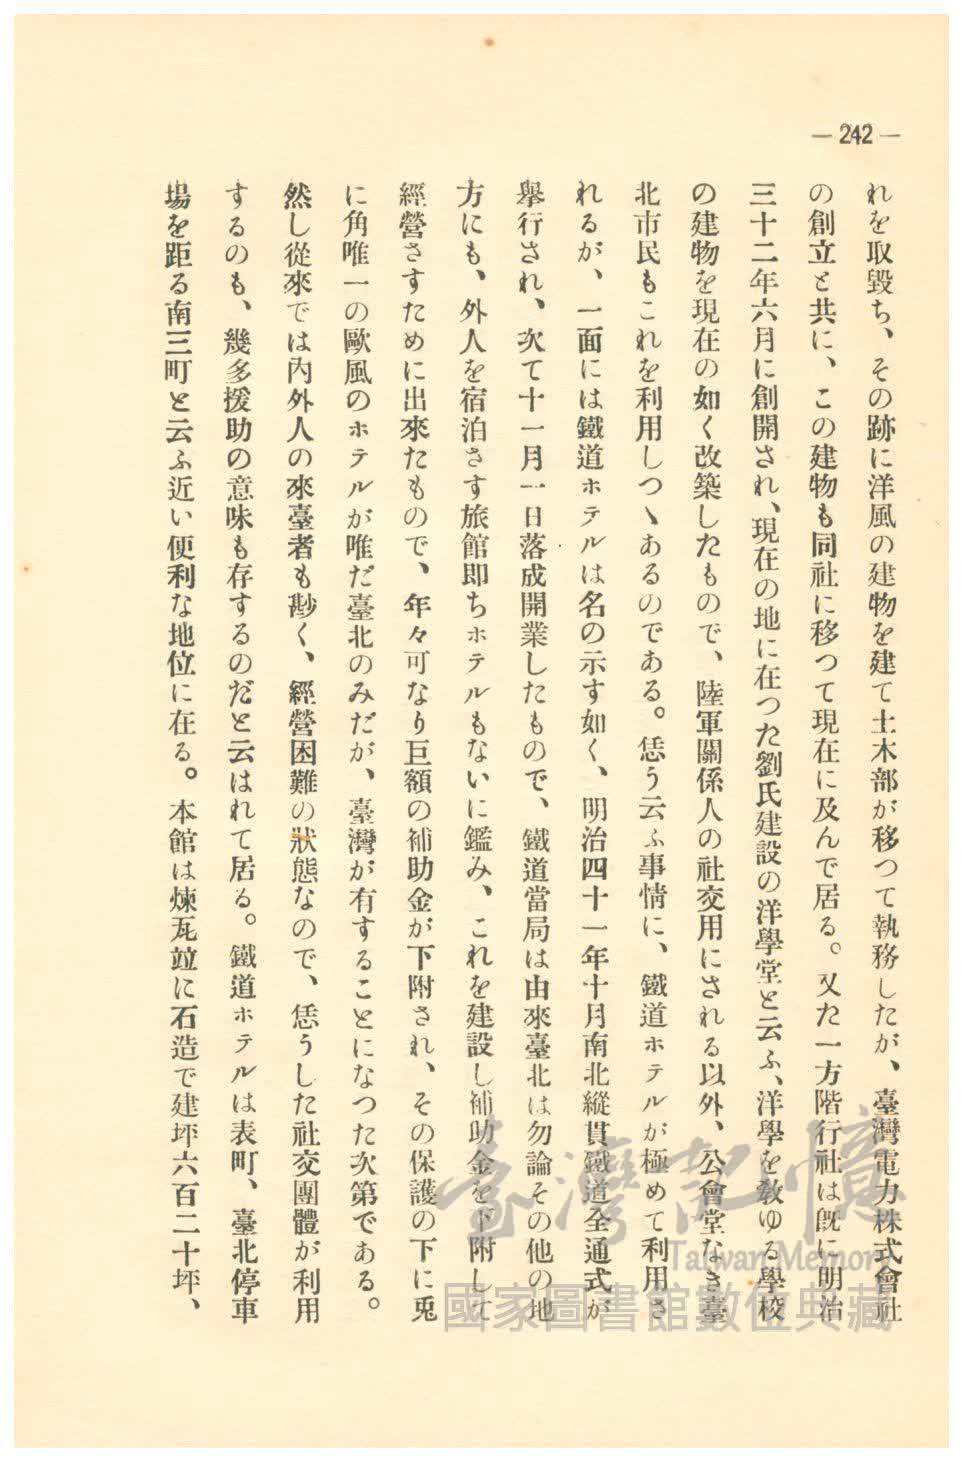 —242—
れを取毀ち、その跡に洋風の建物を建て土木部が移つて執務したが、臺灣電力株式會社
の創立と共に、この建物も同社に移つて現在に及んで居る。又た一方階行社は旣に明治
三十二年六月に創開され、現在の地に在つた劉氏建設の洋學堂と云ふ、洋學を敎ゆる學校
の建物を現在の如く改築したもので、陸軍關係人の社交用にされる以外、公會堂なき臺
北市民もこれを利用しつゝあるのである。恁う云ふ事情に、鐵道ホテルが極めて利用さ
れるが、一面には鐵道ホテルは名の示す如く、明治四十一年十月南北縱貫鐵道全通式が
擧行され、次て十一月一日落成開業したもので、鐵道當局は由來臺北は勿論その他の地
方にも、外人を宿泊さす旅館卽ちホテルもないに鑑み、これを建設し補助金を下附して
經營さすために出來たもので、年々可なり巨額の補助金が下附され、その保護の下に兎
に角唯一の歐風のホテルが唯だ臺北のみだが、臺灣が有することになつた次第である。
然し從來では內外人の來臺者も尠く、經營困難の狀態なので、恁うした社交團體が利用
するのも、幾多援助の意味も存するのだと云はれて居る。鐵道ホテルは表町、臺北停車
場を距る南三町と云ふ近い便利な地位に在る。本館は煉瓦竝に石造で建坪六百二十坪、
臺灣記憶
Taiwan Memory
國家圖書館數位典藏